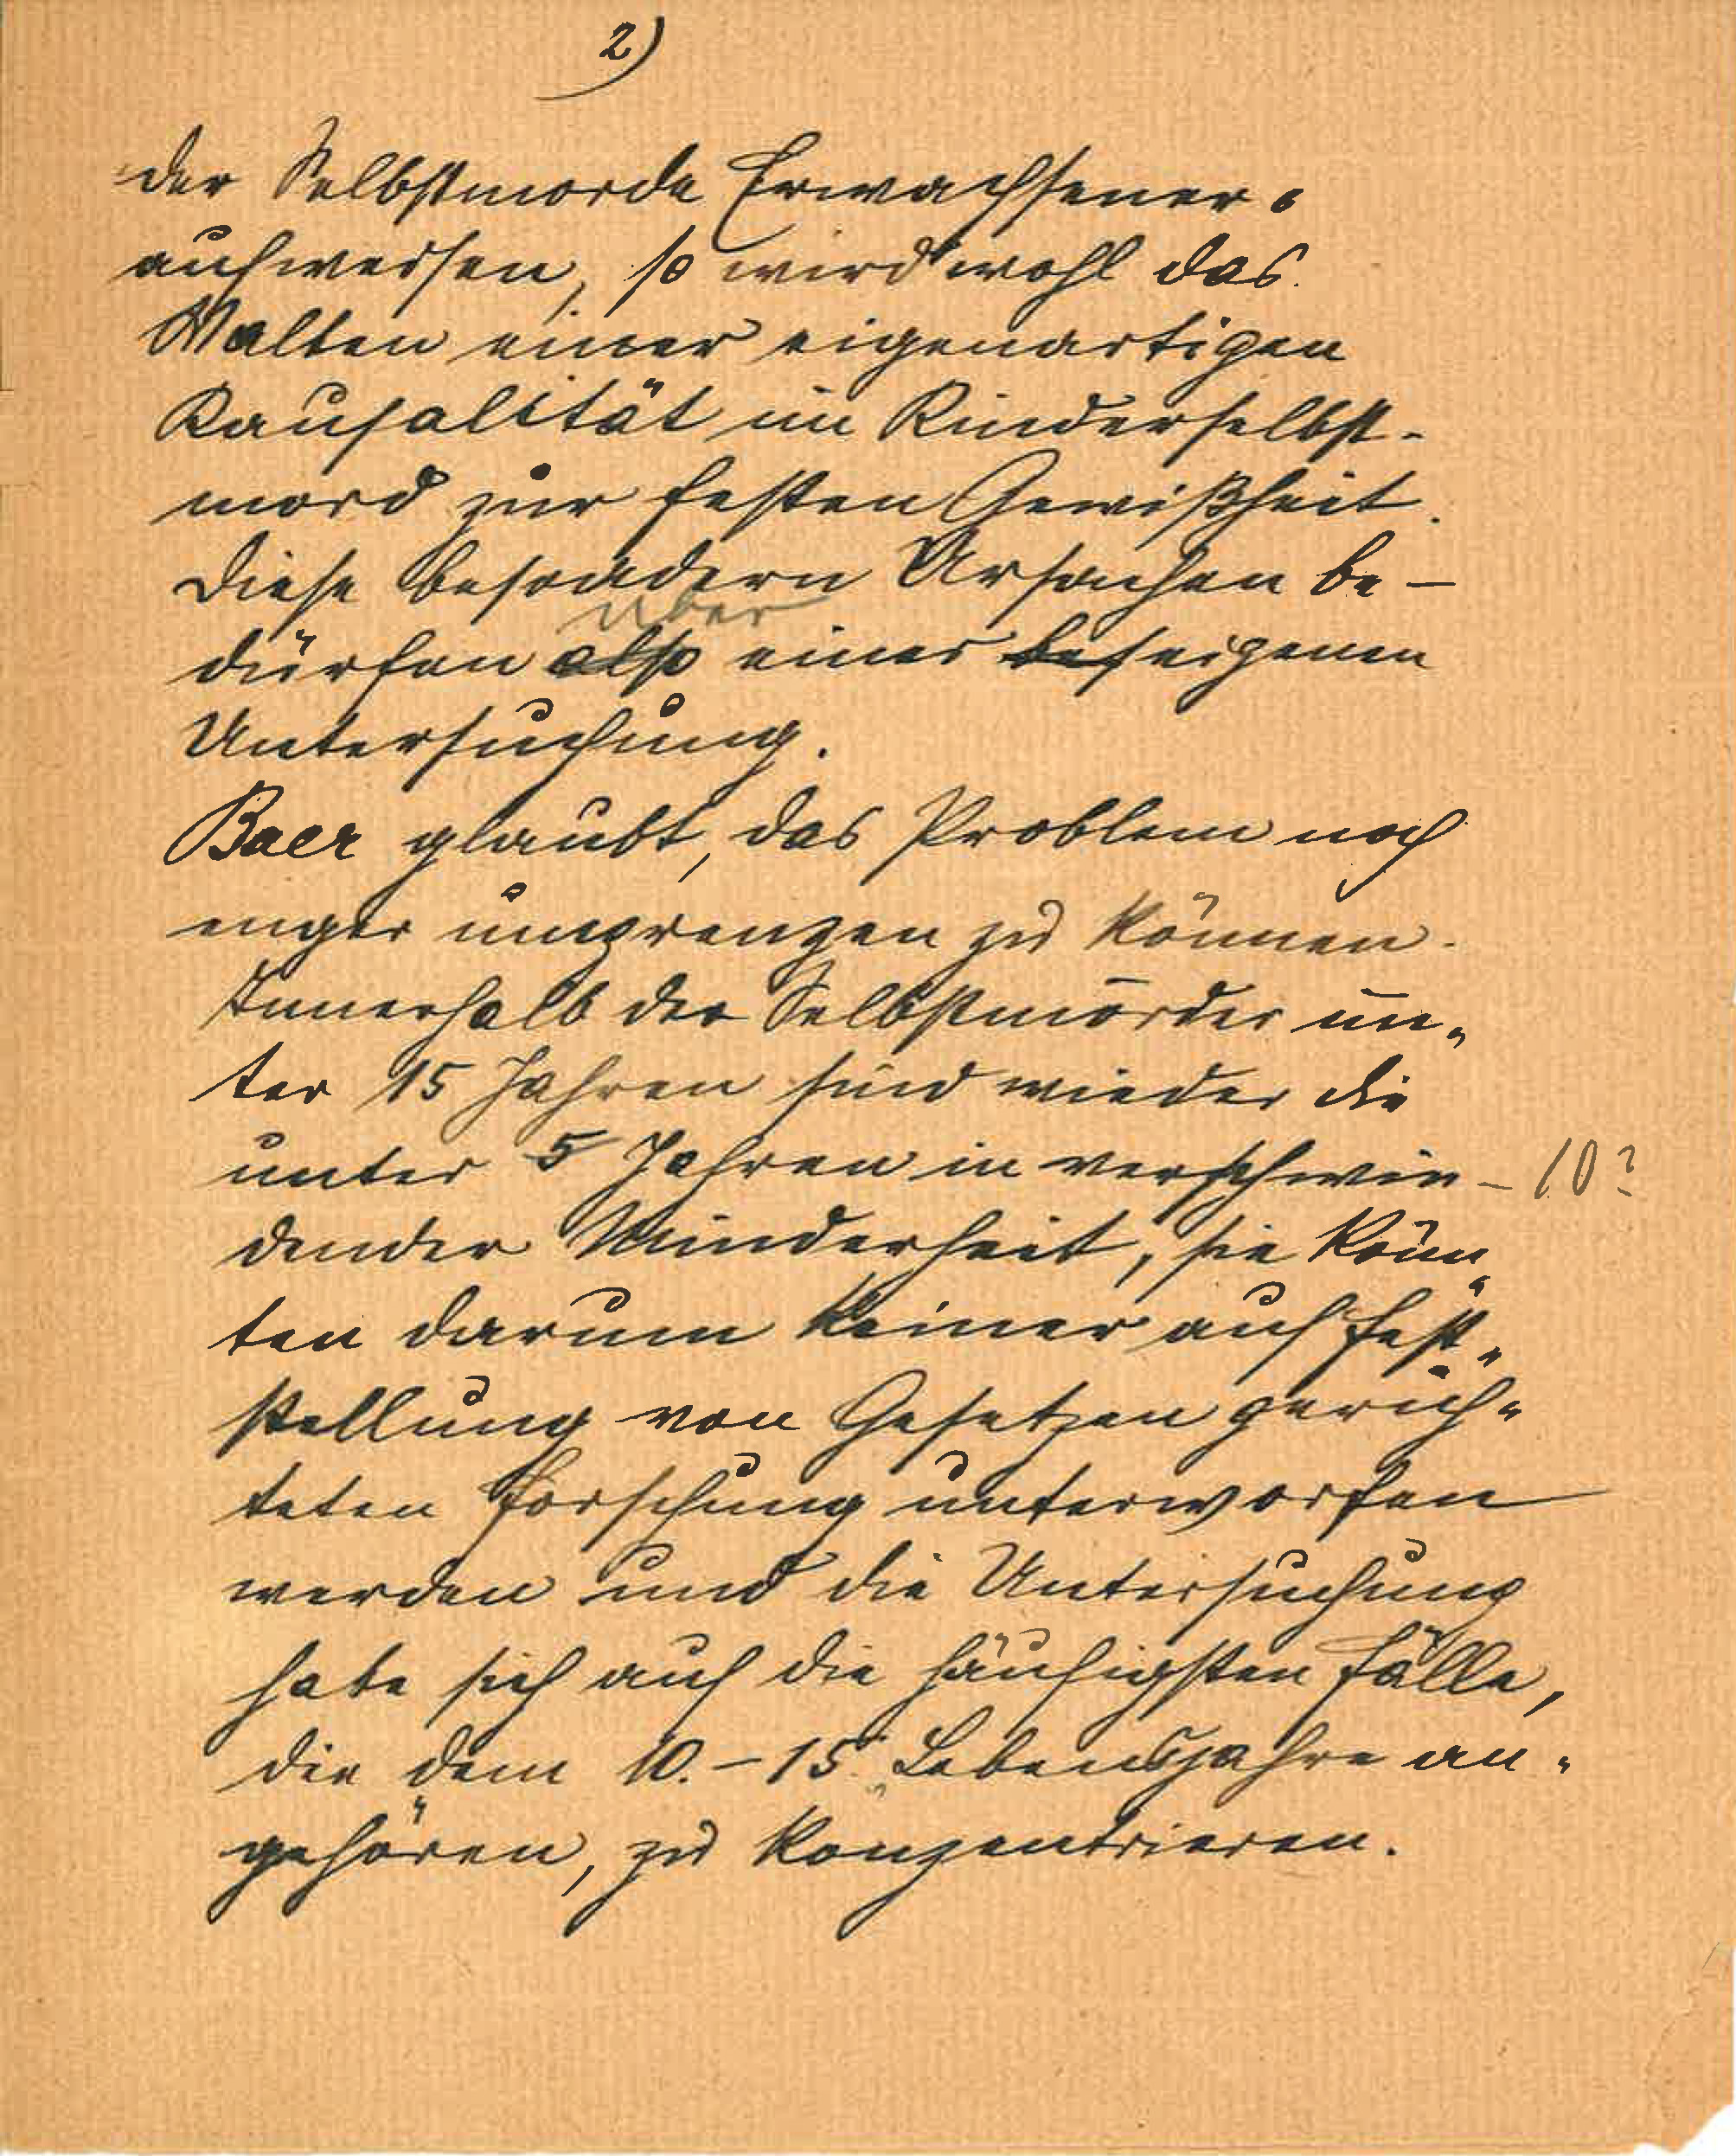 2)
der Selbstmorde Erwachsener
aufweisen, so wird wohl das
Walten einer eigenartigen
Kausalität im Kinderselbst-
mord zur festen Gewißheit.
Diese besondern Ursachen be-
über
dürfen also einer bes eigenen
Untersuchung.
Baer glaubt, das Problem noch
enger umgrenzen zu können.
Innerhalb der Selbstmörder un-
ter 15 Jahren sind wieder die
unter 5 Jahren in verschwin- 10?
dender Minderheit, sie könn-
ten darum keiner auf Fest-
stellung von Gesetzen gerich-
teten Forschung unterworfen
werden und die Untersuchung
habe sich auf die häufigsten Fälle,
die dem 10.-15. Lebensjahre an-
gehören, zu konzentrieren.